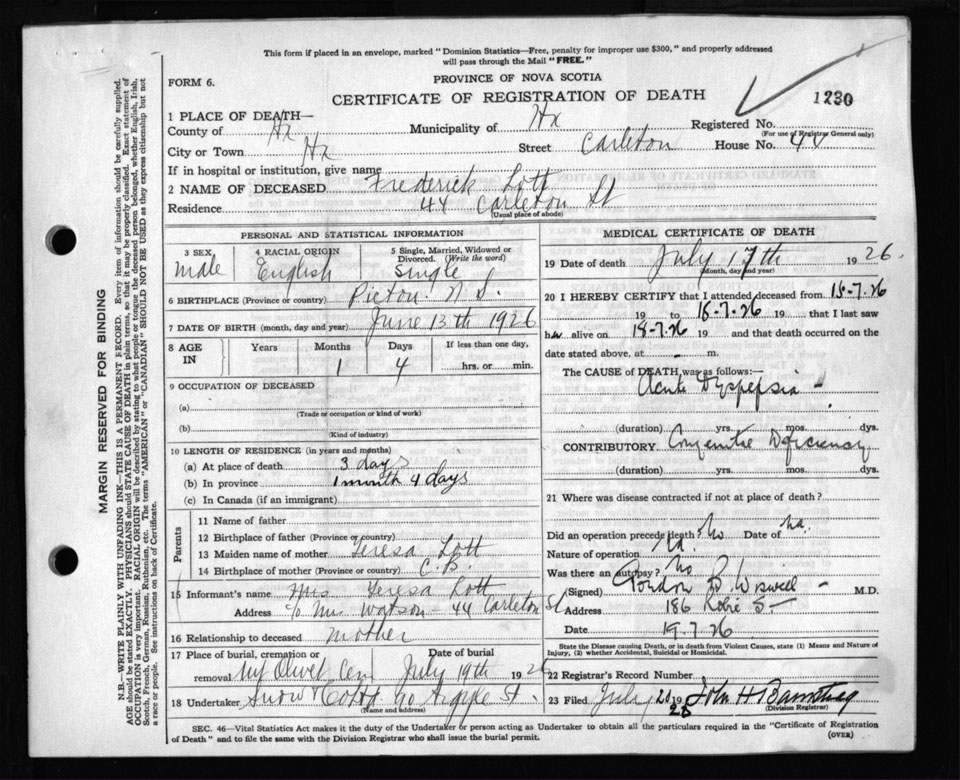 This form if placed in an envelope, marked "Dominion Statistics—Free, penalty for improper use $300," and properly addressed
will pass through the Mail "FREE."
FORM 6.
PROVINCE OF NOVA SCOTIA
CERTIFICATE OF REGISTRATION OF DEATH
1230
1 PLACE OF DEATH—
County of Hx Municipality of Hx Registered No.
(For use of Registrar General only)
City or Town Hx Street Carleton House No. 44
If in hospital or institution, give name
2 NAME OF DECEASED Frederick Lott
Residence 44 Carleton St
(Usual place of abode)
PERSONAL AND STATISTICAL INFORMATION
3 SEX Male
4 RACIAL ORIGIN English
5 Single, Married, Widowed or Divorced. (Write the word) Single
6 BIRTHPLACE (Province or country) Pictou N S.
7 DATE OF BIRTH (month, day and year) June 13th 1926
8 AGE IN Years Months 1 Days 4 If less than one day, hrs. or min.
9 OCCUPATION OF DECEASED
(a)
(Trade or occupation or kind of work)
(b)
(Kind of industry)
10 LENGTH OF RESIDENCE (in years and months)
(a) At place of death 3 days
(b) In province 1 month 4 days
(c) In Canada (if an immigrant)
Parents
11 Name of father
12 Birthplace of father (Province or country)
13 Maiden name of mother Teresa Lott
14 Birthplace of mother (Province or country) C.B.
15 Informant's name Mrs Teresa Lott
Address c/o Mrs Watson - 44 Carleton St
16 Relationship to deceased mother
17 Place of burial, cremation or removal Mt Olivet Cem
Date of burial July 19th 1926
18 Undertaker Snow & Co Ltd 90 Argyle St.
(Name and address)
MEDICAL CERTIFICATE OF DEATH
19 Date of death July 17th 1926.
(Month, day and year)
20 I HEREBY CERTIFY that I attended deceased from 15-7-26
19 to 18-7-26 19 that I last saw
h alive on 18-7-26 19 and that death occurred on the
date stated above, at - m.
The CAUSE of DEATH was as follows:—
Acute Dyspepsia -
(duration) yrs. mos. dys.
CONTRIBUTORY Congenital Deficiency
(duration) yrs. mos. dys.
21 Where was disease contracted if not at place of death?
Did an operation precede death? No Date of na.
Nature of operation na.
Was there an autopsy? No
(Signed) Gordon B Wiswell - M.D.
Address 186 Robie St
Date 19.7.26
State the Disease Causing Death, or in death from Violent Causes, state (1) Means and Nature of
Injury, (2) whether Accidental, Suicidal or Homicidal.
22 Registrar's Record Number
23 Filed July 20 19 23 John H
(Division Registrar)
SEC. 46—Vital Statistics Act makes it the duty of the Undertaker or person acting as Undertaker to obtain all the particulars required in the "Certificate of Registration
of Death" and to file the same with the Division Registrar who shall issue the burial permit.
(OVER)
MARGIN RESERVED FOR BINDING
N.B.—WRITE PLAINLY WITH UNFADING INK—THIS IS A PERMANENT RECORD. Every item of information should be carefully supplied.
AGE should be stated EXACTLY. PHYSICIANS should STATE CAUSE OF DEATH in plain terms, so that it may be properly classified. Exact statement of
OCCUPATION is very important. RACIAL ORIGIN will be described by stating to what people or tongue the deceased person belonged, whether English, Irish,
Scotch, French, German, Russian, Ruthenian, etc. The terms "AMERICAN" or "CANADIAN" SHOULD NOT BE USED as they express citizenship but not
a race or people. See instructions on back of Certificate.